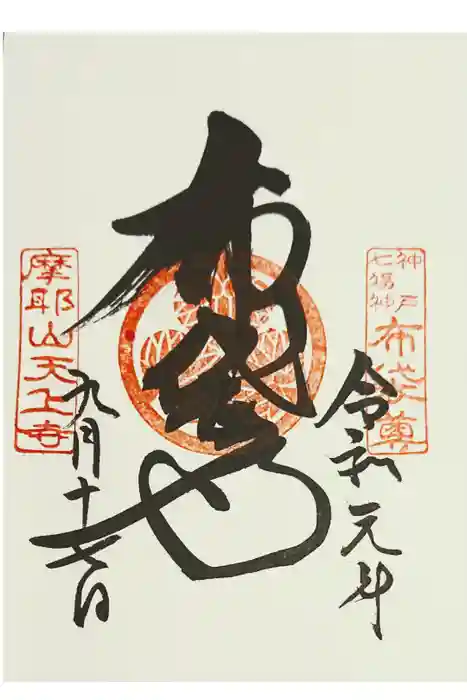 神戸
七福神
布袋尊
令和元年
布袋尊
摩耶山天上寺
九月十七日